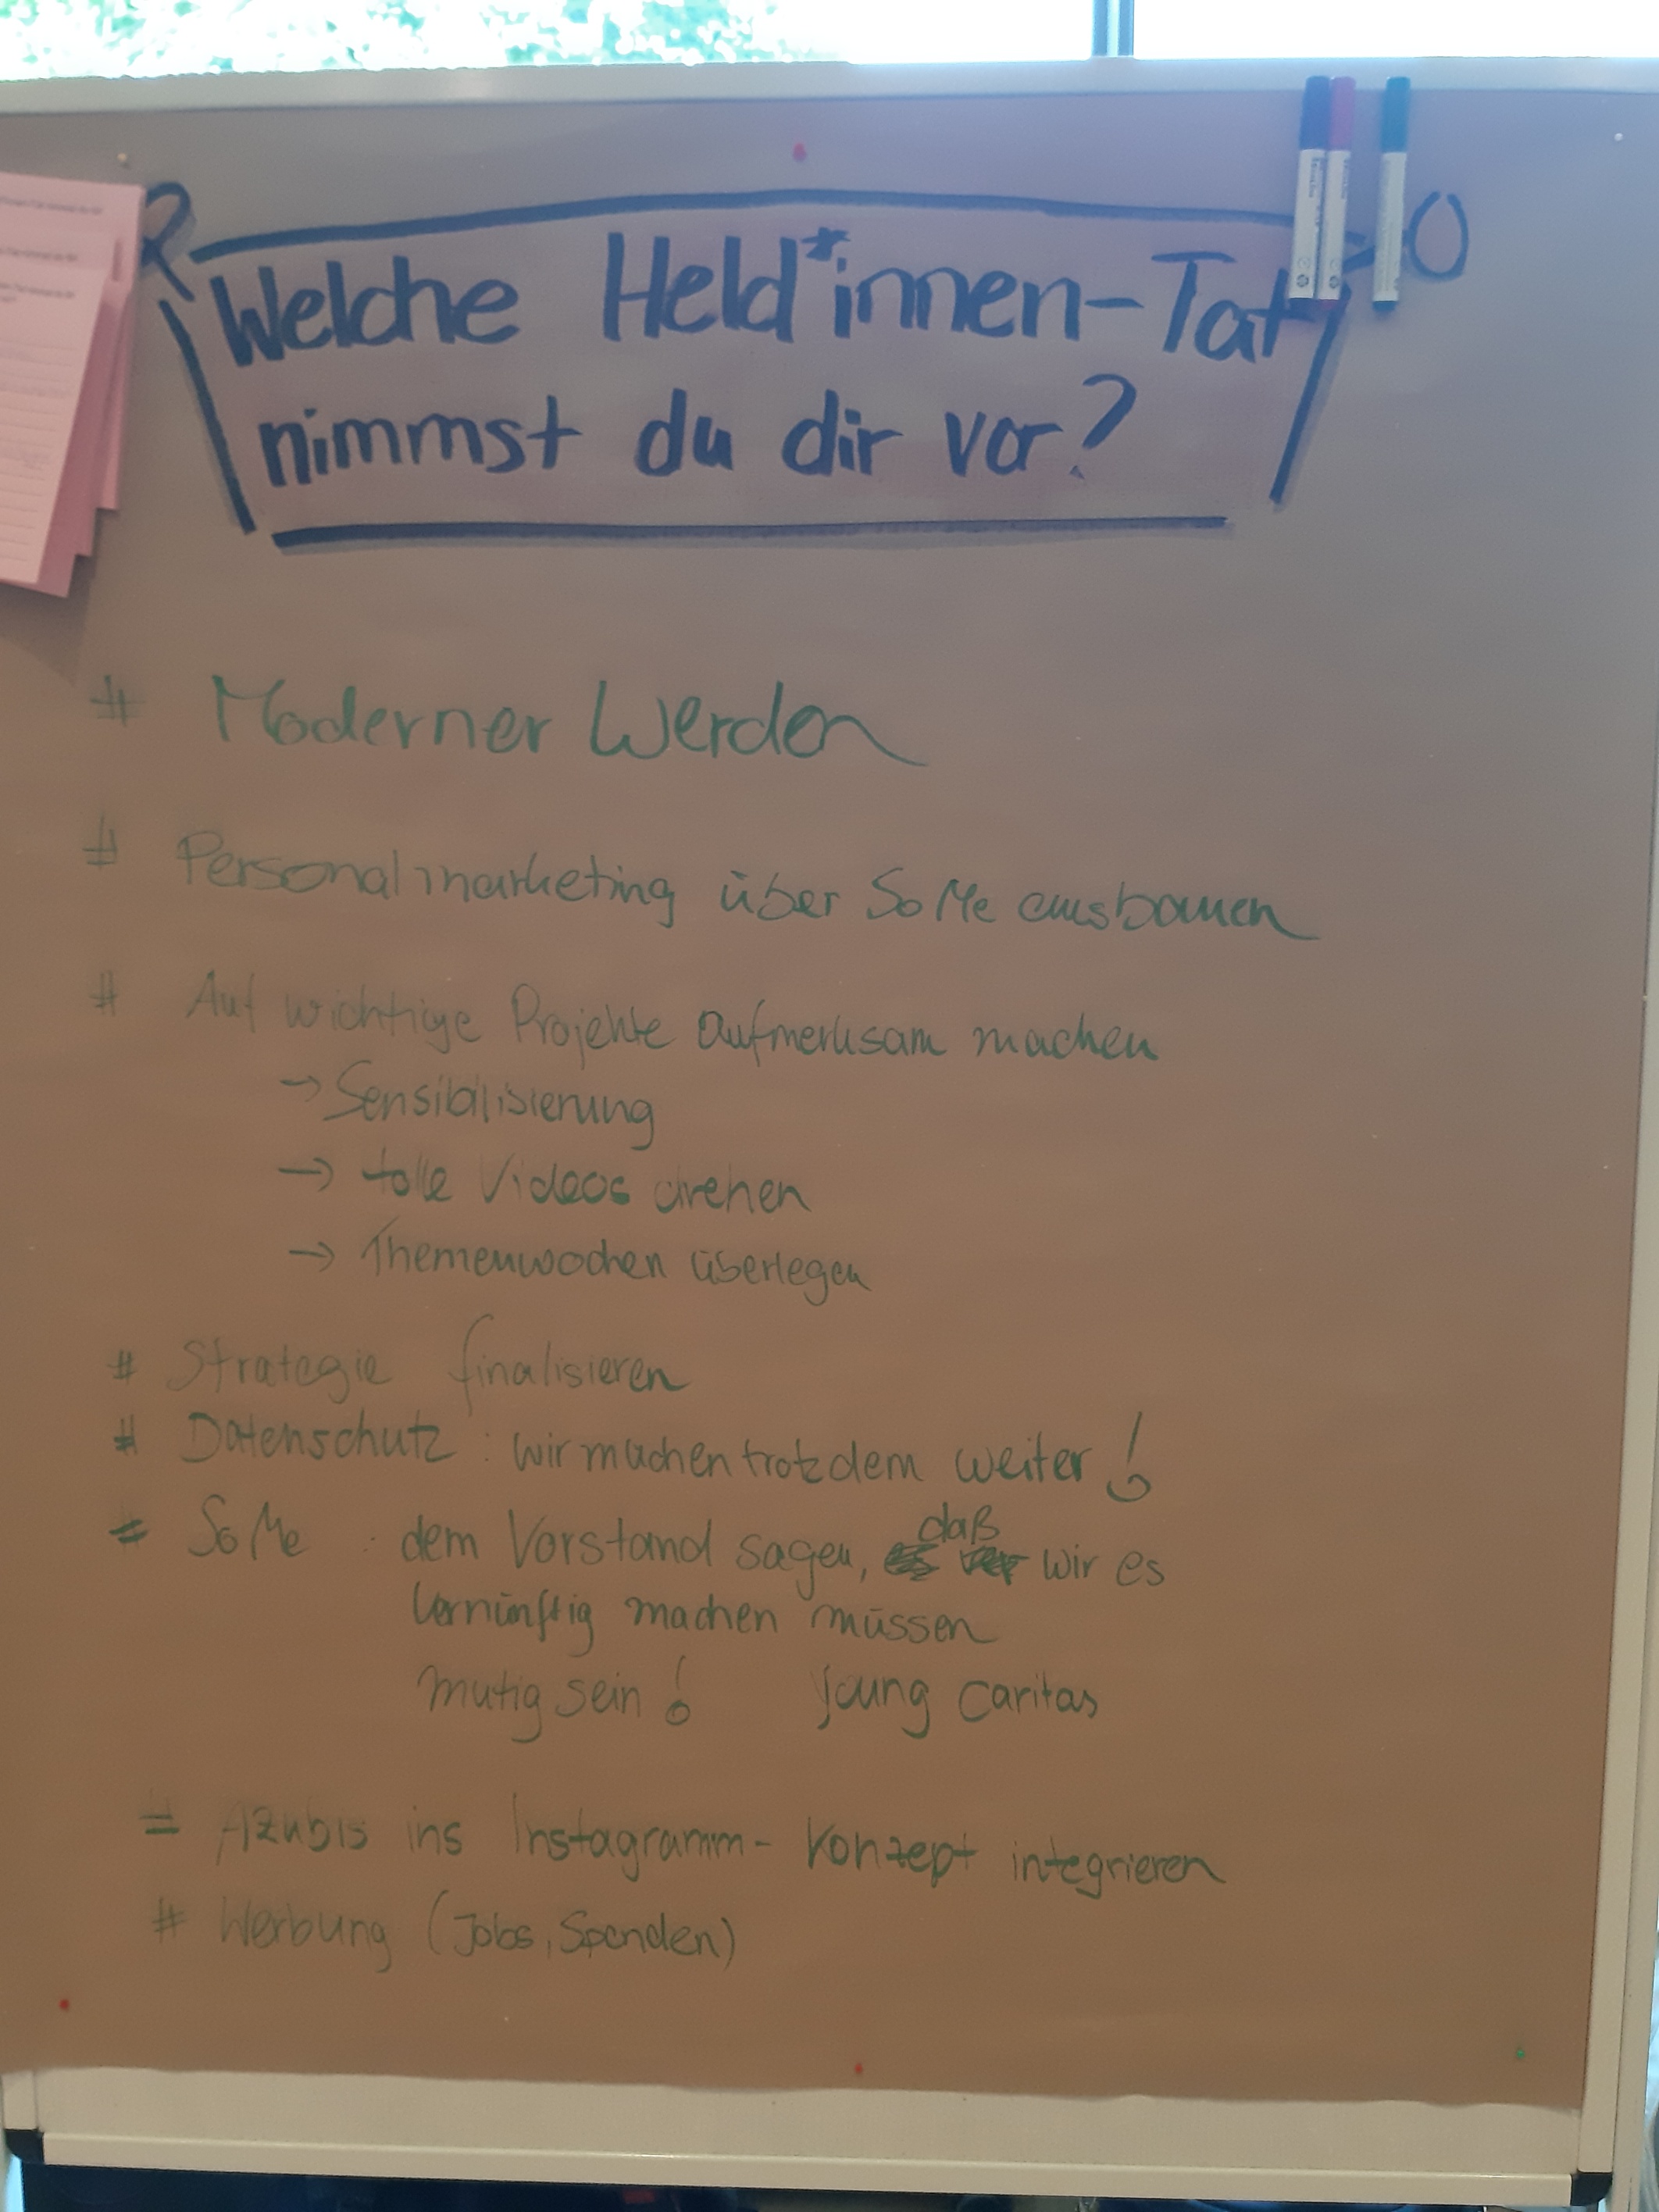 Welche Held*innen-Tat
nimmst du dir vor?
# Moderner Werden
# Personalmarketing über SoMe ausbauen
# Auf wichtige Projekte aufmerksam machen
→ Sensibilisierung
→ tolle Videos drehen
→ Themenwochen überlegen
# Strategie finalisieren
# Datenschutz: wir machen trotzdem weiter!
# SoMe : dem Vorstand sagen, daß wir es
vernünftig machen müssen
mutig sein! young caritas
# Azubis ins Instagramm-Konzept integrieren
# Werbung (Jobs, Spenden)